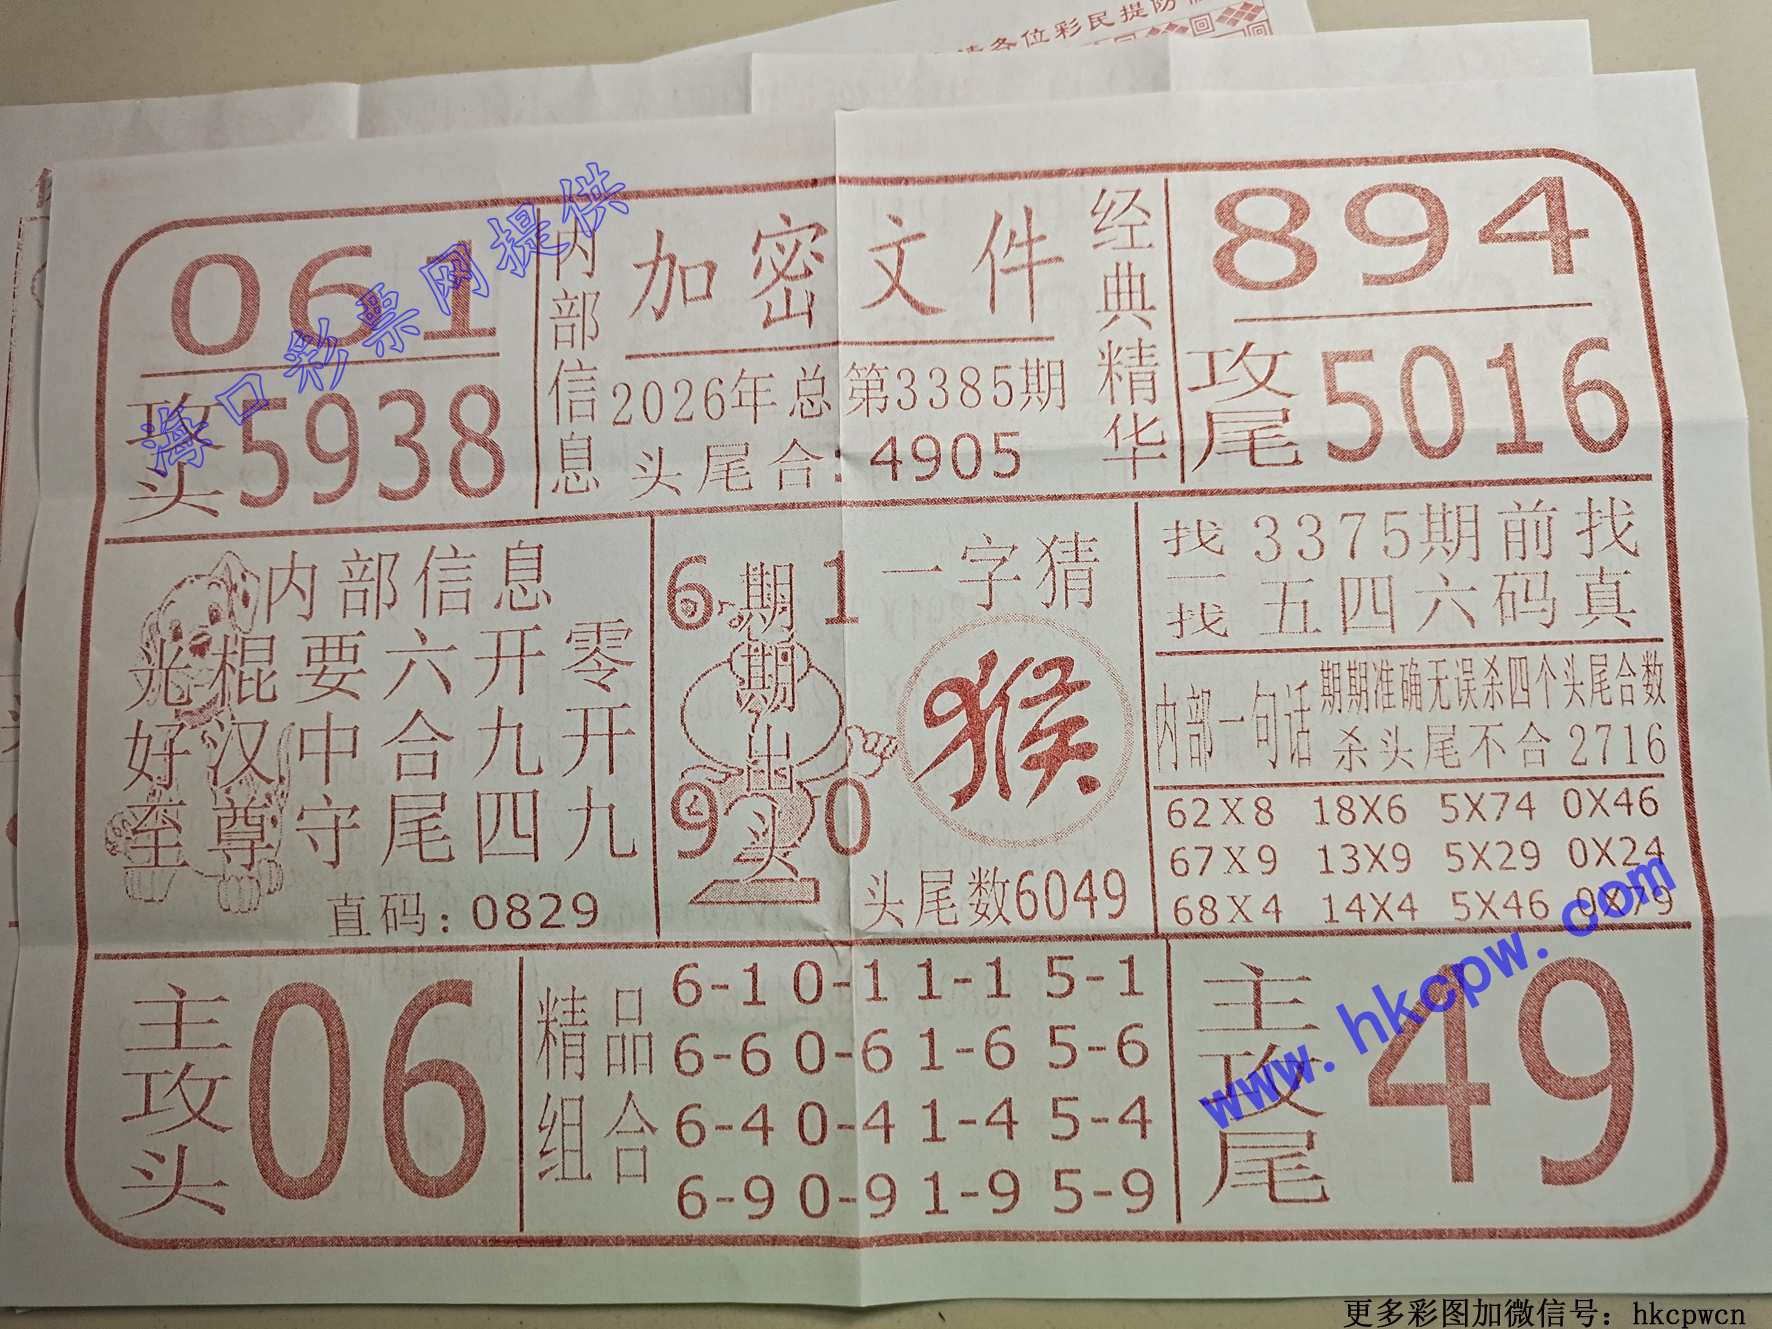 请各位彩民提防
海口彩票网提供
061
攻头 5938
内部信息
加密文件
2026年总第3385期
头尾合:4905
经典精华
894
攻尾 5016
内部信息
光棍要六开零
好汉中合九开
至尊守尾四九
直码:0829
6 1
9 0
期期出头
一字猜
猴
头尾数6049
找一找
3375期前找
五四六码真
内部一句话
期期准确无误杀四个头尾合数
杀头尾不合2716
62X8 18X6 5X74 0X46
67X9 13X9 5X29 0X24
68X4 14X4 5X46 0X79
主攻头 06
精品组合
6-1 0-1 1-1 5-1
6-6 0-6 1-6 5-6
6-4 0-4 1-4 5-4
6-9 0-9 1-9 5-9
主攻尾 49
www.hkcpw.com
更多彩图加微信号：hkcpwcn